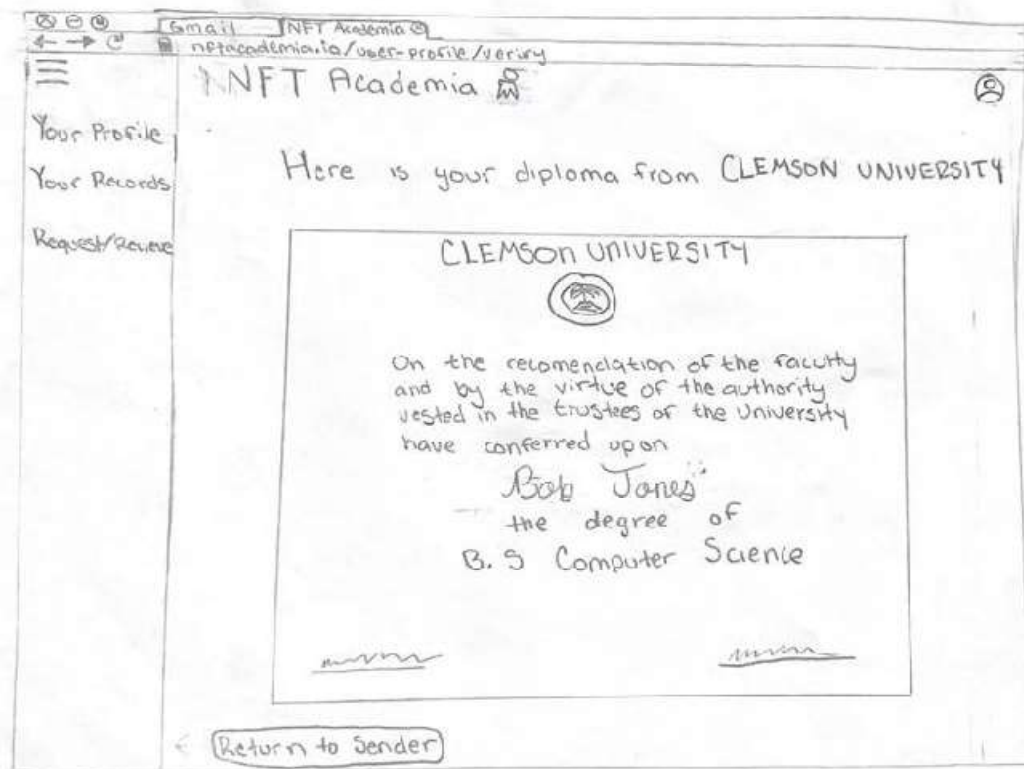 Gmail
NFT Academia
nftacademia.io/user-profile/verify
NFT Academia
Your Profile
Your Records
Request/
Here is your diploma from CLEMSON UNIVERSITY
CLEMSON UNIVERSITY
On the recomendation of the faculty
and by the virtue of the authority
vested in the trustees of the University
have conferred upon
Bob Jones
the degree of
B.S Computer Science
Return to Sender